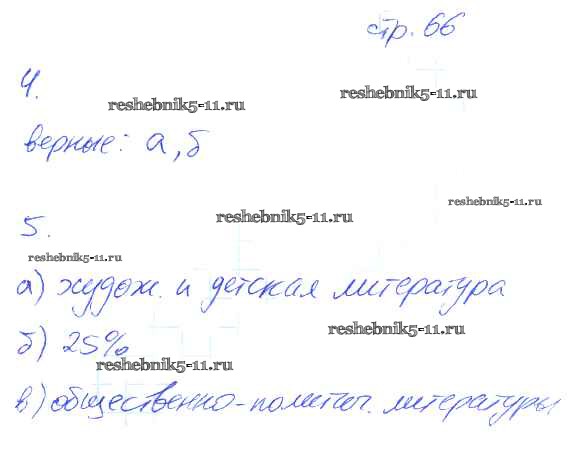 стр. 66
4.
reshebnik5-11.ru
reshebnik5-11.ru
верные: а, б
reshebnik5-11.ru
5.
reshebnik5-11.ru
reshebnik5-11.ru
а) худож. и детская литература
reshebnik5-11.ru
б) 25%
reshebnik5-11.ru
в) общественно-полит. литературы